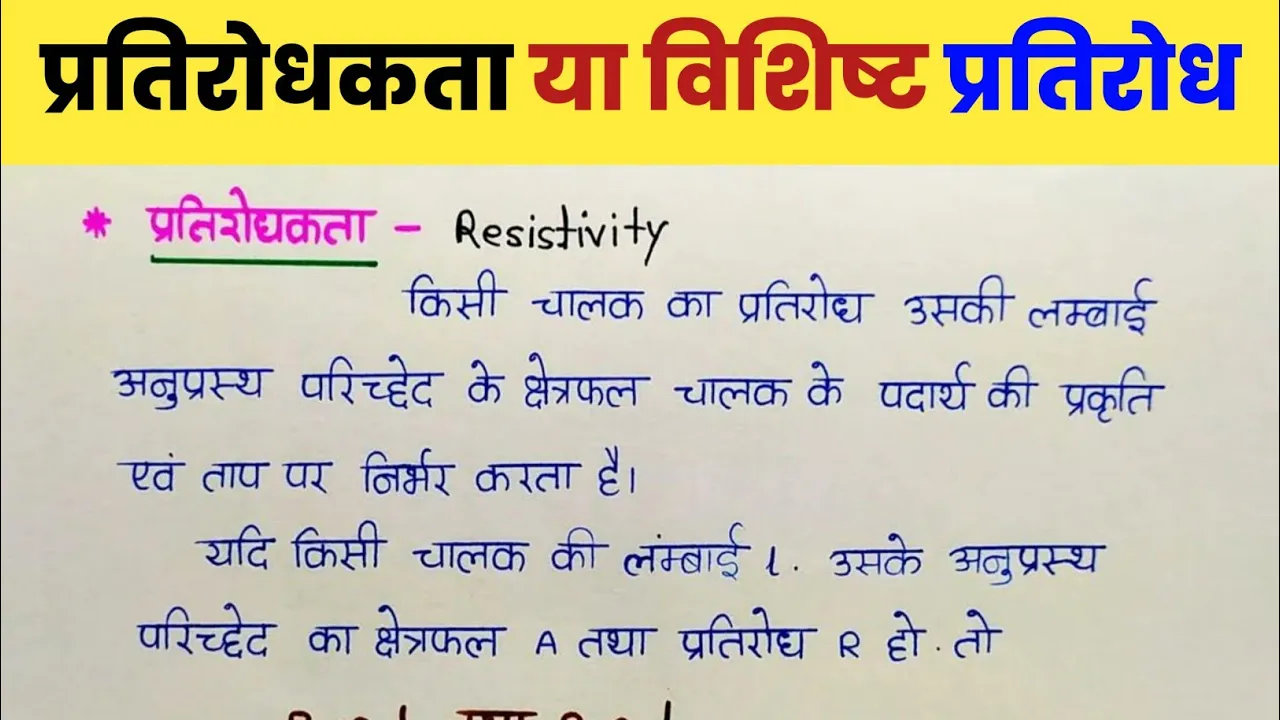 प्रतिरोधकता या विशिष्ट प्रतिरोध
* प्रतिरोधकता - Resistivity
किसी चालक का प्रतिरोध उसकी लम्बाई
अनुप्रस्थ परिच्छेद के क्षेत्रफल चालक के पदार्थ की प्रकृति
एवं ताप पर निर्भर करता है।
यदि किसी चालक की लंम्बाई l. उसके अनुप्रस्थ
परिच्छेद का क्षेत्रफल A तथा प्रतिरोध R हो. तो